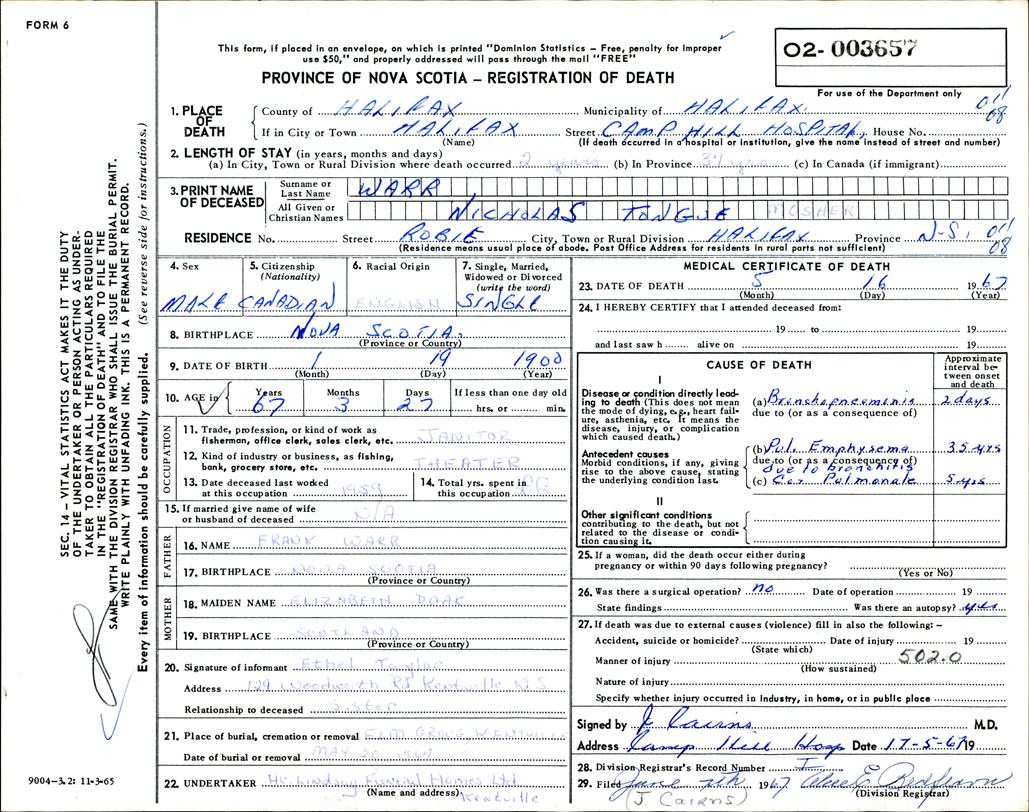 FORM 6
This form, if placed in an envelope, on which is printed "Dominion Statistics – Free, penalty for improper
use $50," and properly addressed will pass through the mail "FREE"
PROVINCE OF NOVA SCOTIA – REGISTRATION OF DEATH
02-003657
For use of the Department only
1. PLACE OF DEATH { County of HALIFAX Municipality of HALIFAX. 011 08
If in City or Town HALIFAX Street CAMP HILL HOSPITAL, House No.
(Name) (If death occurred in a hospital or institution, give the name instead of street and number)
2. LENGTH OF STAY (in years, months and days)
(a) In City, Town or Rural Division where death occurred 2 years (b) In Province (c) In Canada (if immigrant)
3. PRINT NAME OF DECEASED { Surname or Last Name WARR
All Given or Christian Names NICHOLAS TONGUE MOSHER
RESIDENCE No. Street ROBIE City, Town or Rural Division HALIFAX Province N-S. 011 08
(Residence means usual place of abode. Post Office Address for residents in rural parts not sufficient)
4. Sex MALE
5. Citizenship (Nationality) CANADIAN
6. Racial Origin ENGLISH
7. Single, Married, Widowed or Divorced (write the word) SINGLE
8. BIRTHPLACE NOVA SCOTIA.
(Province or Country)
9. DATE OF BIRTH 1 19 1900
(Month) (Day) (Year)
10. AGE in Years 67 Months 3 Days 27 If less than one day old hrs. or min.
OCCUPATION
11. Trade, profession, or kind of work as fisherman, office clerk, sales clerk, etc. JANITOR
12. Kind of industry or business, as fishing, bank, grocery store, etc. THEATER
13. Date deceased last worked at this occupation 1959
14. Total yrs. spent in this occupation
15. If married give name of wife or husband of deceased N/A
FATHER
16. NAME FRANK WARR
17. BIRTHPLACE NOVA SCOTIA
(Province or Country)
MOTHER
18. MAIDEN NAME ELIZABETH DOAK
19. BIRTHPLACE SCOTLAND
(Province or Country)
20. Signature of informant Ethel Taylor
Address 129 Woodworth Rd Kentville N.S
Relationship to deceased SISTER
21. Place of burial, cremation or removal ELM GROVE KENTVILLE
Date of burial or removal MAY 20 1967
22. UNDERTAKER Lindsay Funeral Homes Ltd
(Name and address) Kentville
MEDICAL CERTIFICATE OF DEATH
23. DATE OF DEATH 5 16 1967
(Month) (Day) (Year)
24. I HEREBY CERTIFY that I attended deceased from:
19 to 19
and last saw h alive on 19
CAUSE OF DEATH
Approximate interval between onset and death
I
Disease or condition directly leading to death (This does not mean the mode of dying, e.g., heart failure, asthenia, etc. It means the disease, injury, or complication which caused death.)
(a) Bronchopneumonia 2 days
due to (or as a consequence of)
Antecedent causes
Morbid conditions, if any, giving rise to the above cause, stating the underlying condition last.
(b) Pul. Emphysema 35 yrs
due to (or as a consequence of)
due to bronchitis
(c) Cor Pulmonale 5 yrs
II
Other significant conditions
contributing to the death, but not related to the disease or condition causing it.
25. If a woman, did the death occur either during
pregnancy or within 90 days following pregnancy?
(Yes or No)
26. Was there a surgical operation? no Date of operation 19
State findings Was there an autopsy? yes
27. If death was due to external causes (violence) fill in also the following: –
Accident, suicide or homicide? Date of injury 19
(State which)
Manner of injury 502.0
(How sustained)
Nature of injury
Specify whether injury occurred in industry, in home, or in public place
Signed by J Cairns M.D.
Address Camp Hill Hosp Date 17-5-67 19
28. Division Registrar's Record Number
29. Filed June 7th 1967
(J. Cairns) (Division Registrar)
SEC. 14 – VITAL STATISTICS ACT MAKES IT THE DUTY
OF THE UNDERTAKER OR PERSON ACTING AS UNDER-
TAKER TO OBTAIN ALL THE PARTICULARS REQUIRED
IN THE "REGISTRATION OF DEATH" AND TO FILE THE
SAME WITH THE DIVISION REGISTRAR WHO SHALL ISSUE THE BURIAL PERMIT.
WRITE PLAINLY WITH UNFADING INK. THIS IS A PERMANENT RECORD.
Every item of information should be carefully supplied. (See reverse side for instructions.)
9004-3.2: 11-3-65